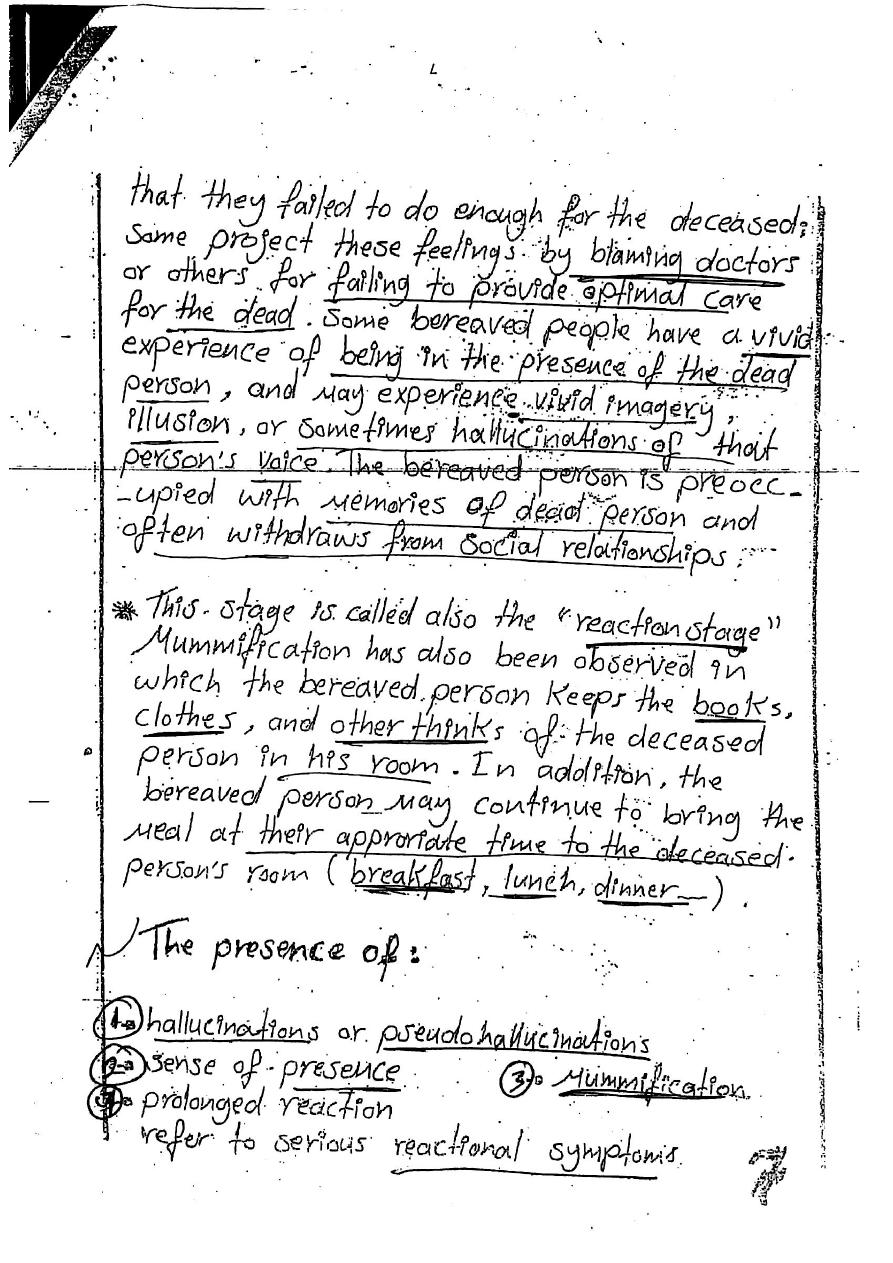 L
that they failed to do enough for the deceased;
Some project these feelings by blaming doctors
or others for failing to provide optimal care
for the dead. Some bereaved people have a vivid
experience of being in the presence of the dead
person, and may experience vivid imagery,
illusion, or sometimes hallucinations of that
person's voice. The bereaved person is preocc-
-upied with memories of dead person and
often withdraws from social relationships.
* This stage is called also the "reaction stage"
Mummification has also been observed in
which the bereaved person keeps the books,
clothes, and other thinks of the deceased
person in his room. In addition, the
bereaved person may continue to bring the
meal at their approriate time to the deceased
person's room (breakfast, lunch, dinner__).
The presence of:
1- hallucinations or pseudohallucinations
2- sense of presence 3- Mummification
prolonged reaction
refer to serious reactional symptoms.
7